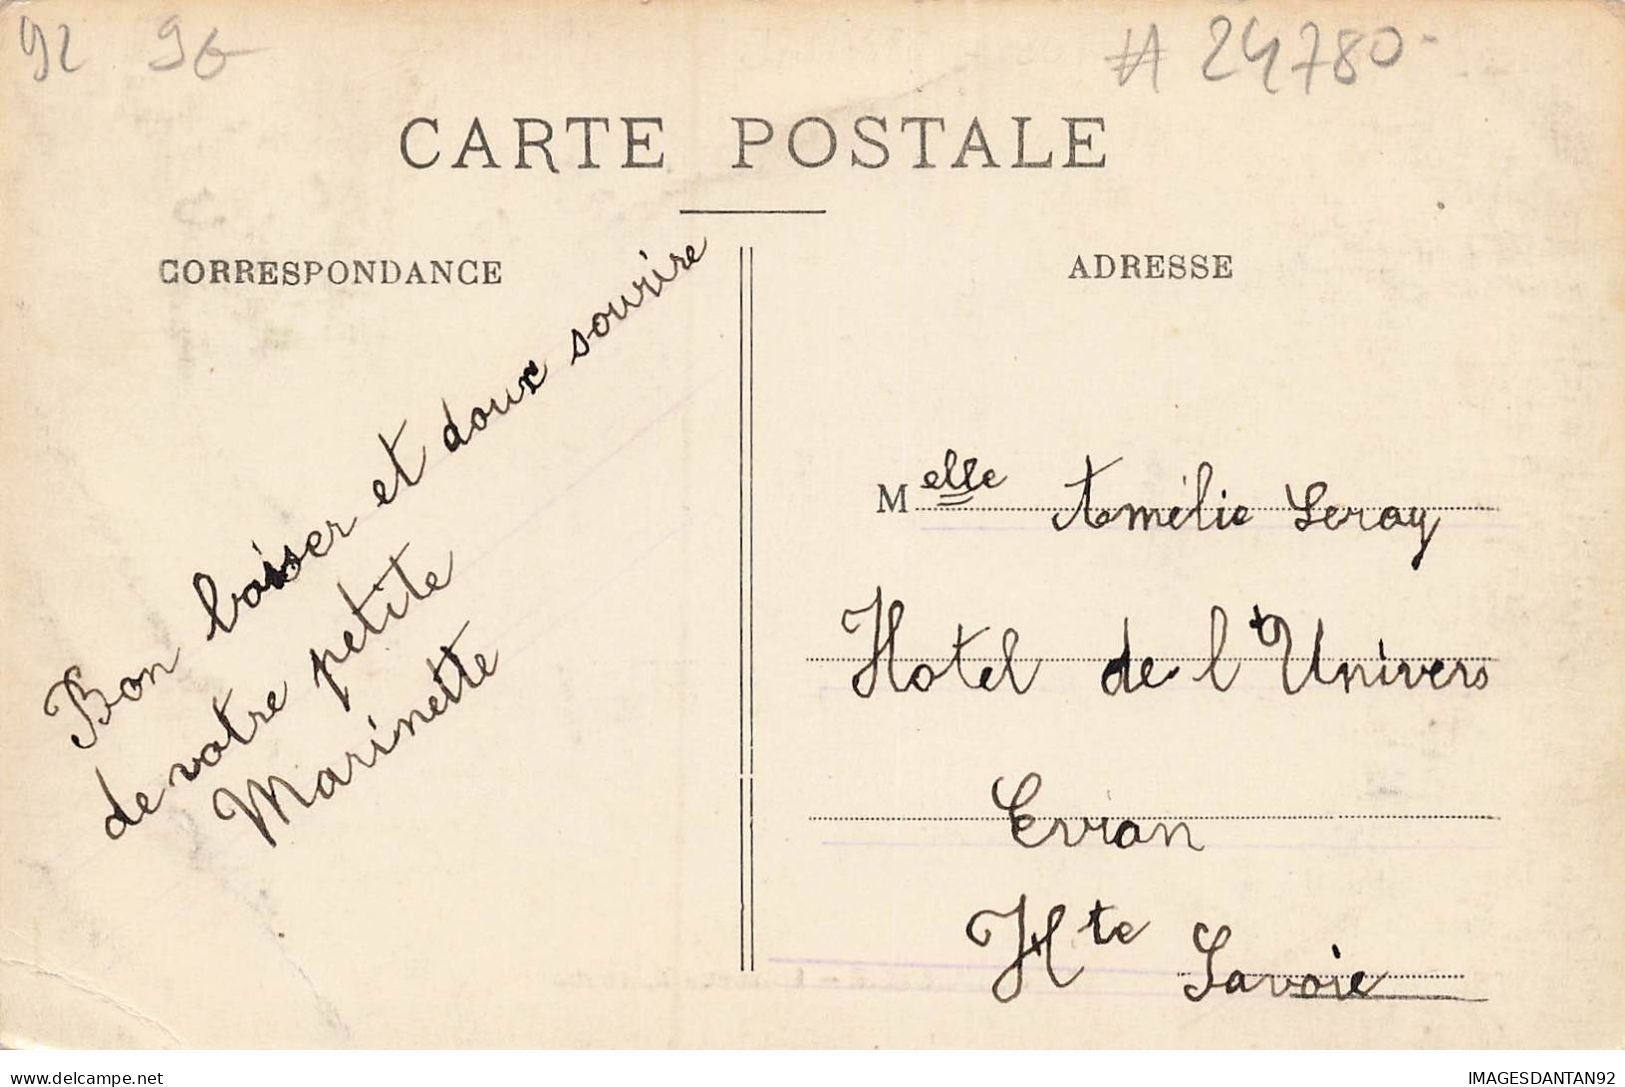 92 96
# 24780-
CARTE POSTALE
CORRESPONDANCE
Bon baiser et doux sourire
de votre petite
Marinette
ADRESSE
Melle Amélie Leray
Hotel de l'Univers
Evian
Hte Savoie
IMAGESDANTAN92